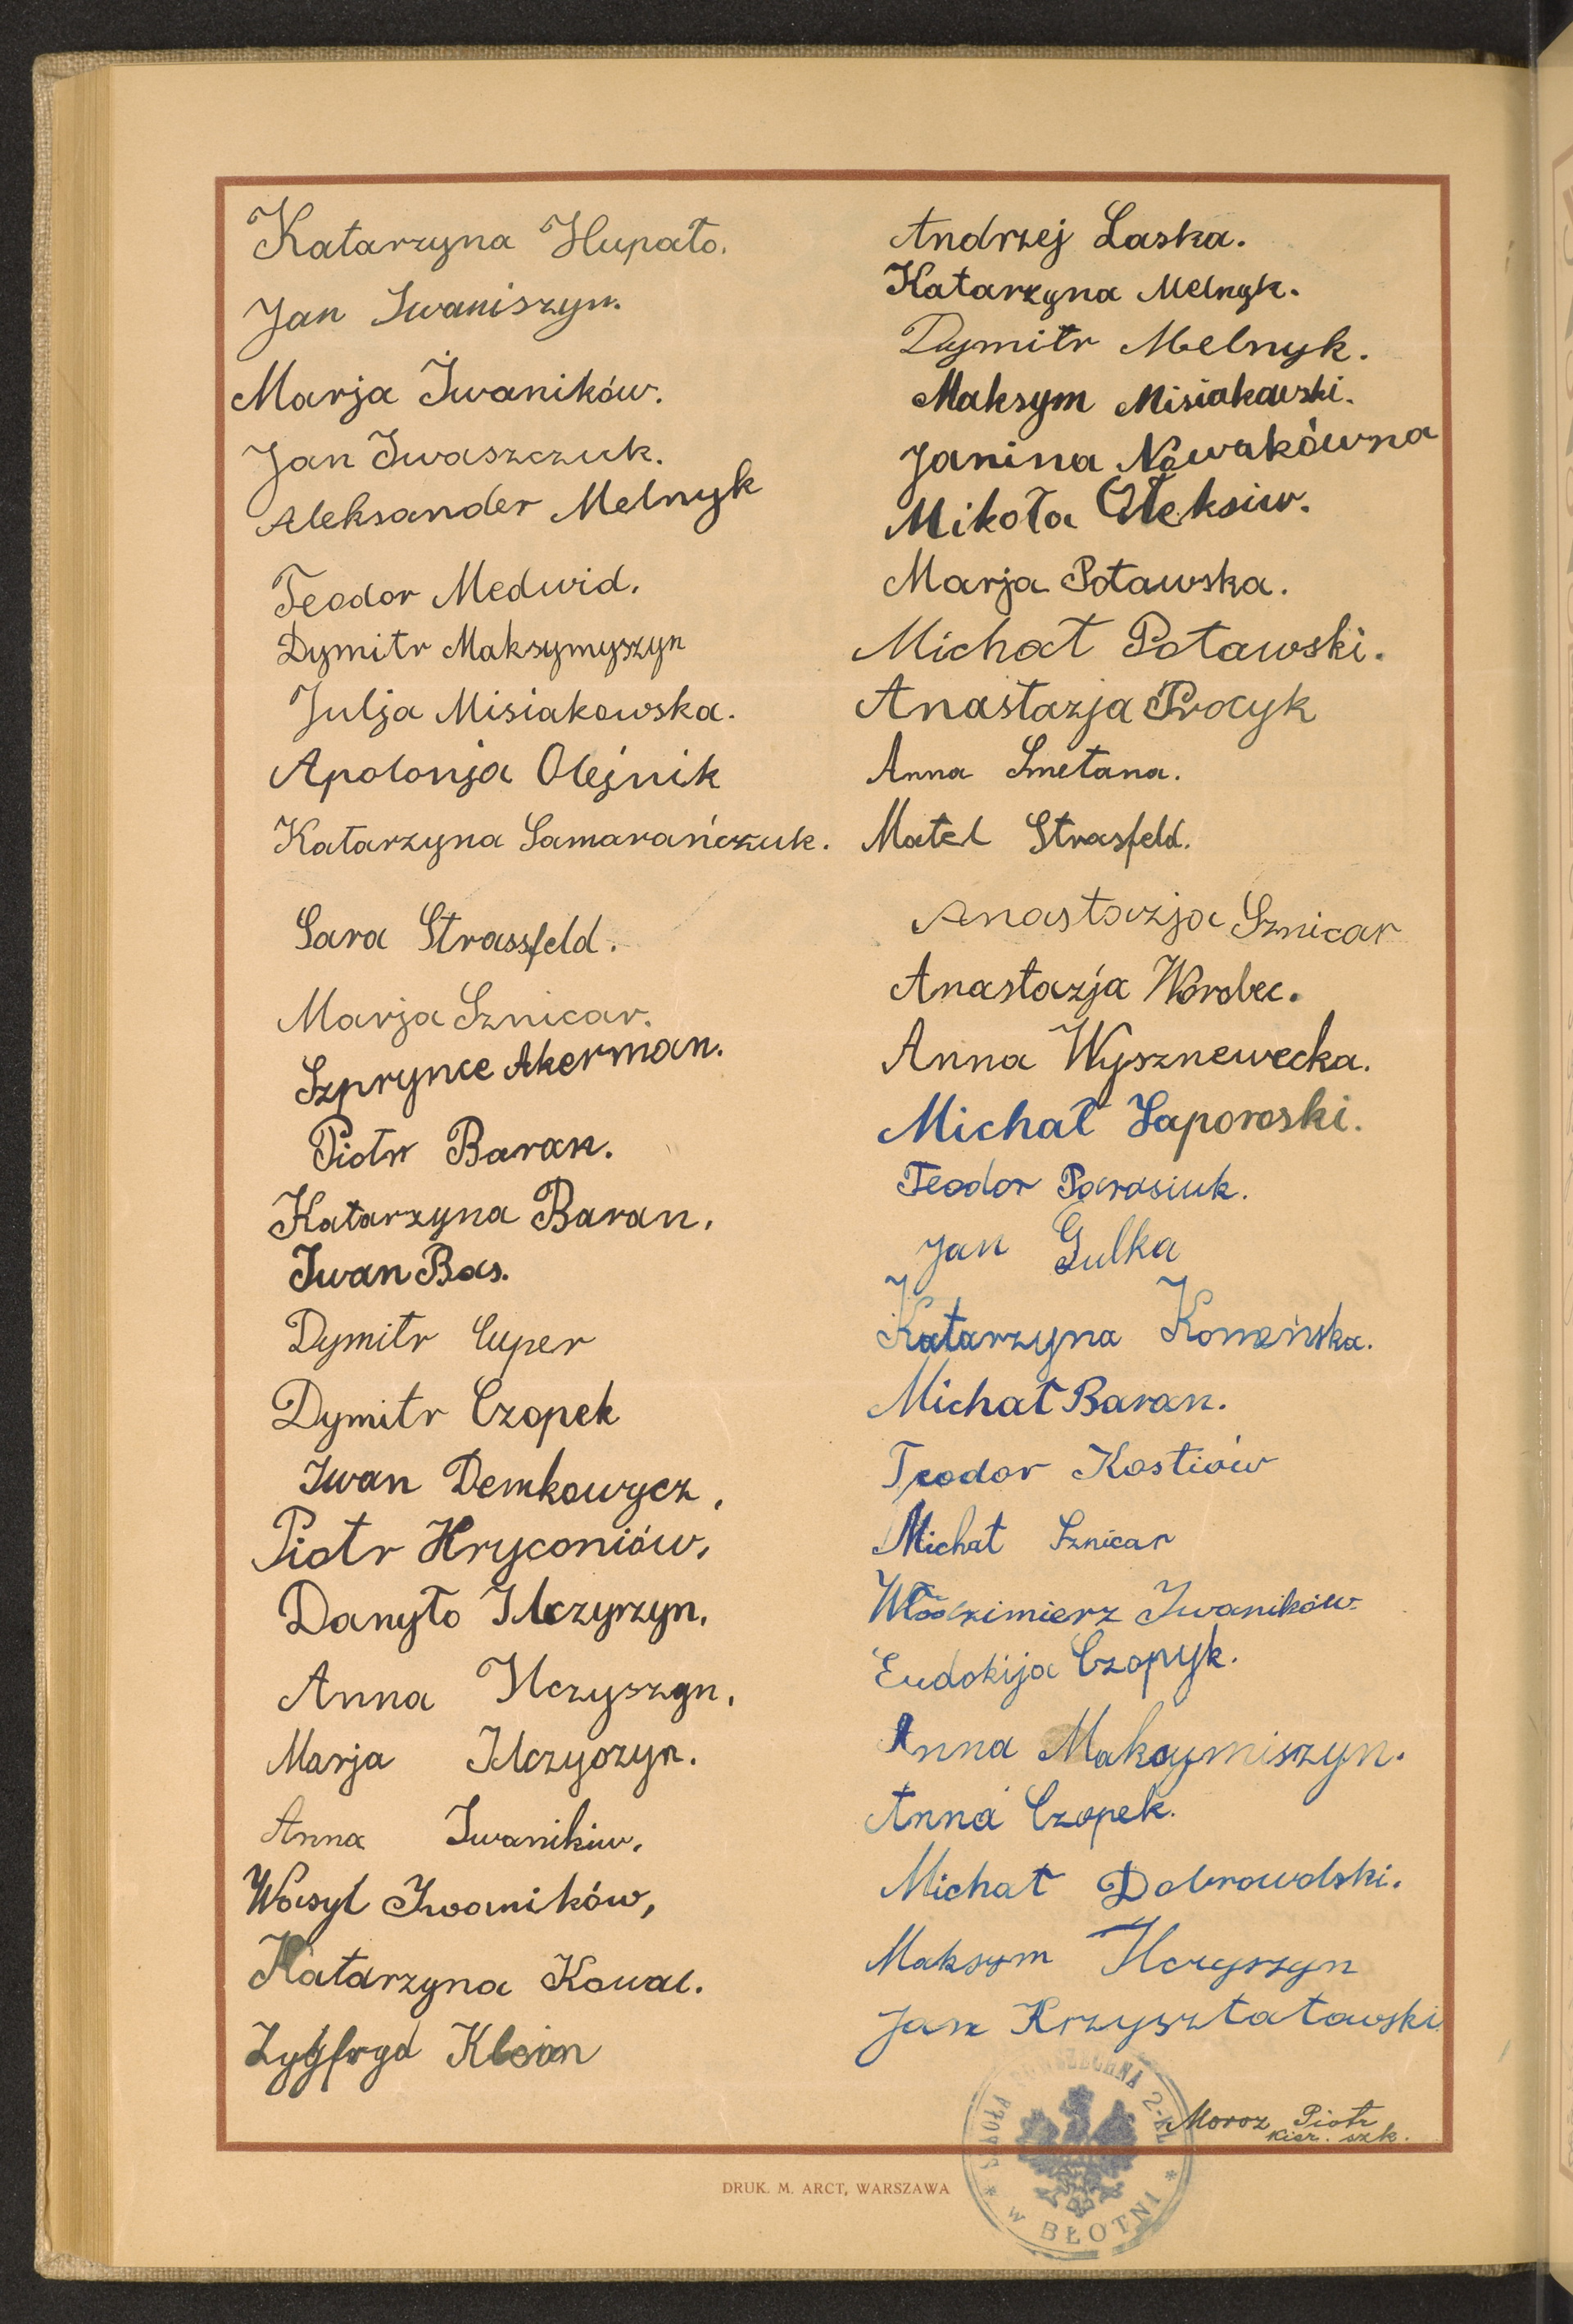 Katarzyna Hupało.
Jan Iwaniszyn.
Marja Iwaników.
Jan Iwaszczuk.
Aleksander Melnyk
Teodor Medwid.
Dymitr Maksymyszyn
Julja Misiakowska.
Apolonja Olejnik
Katarzyna Samarańczuk.
Sara Strassfeld.
Marja Sznicar.
Szprynce Akerman.
Piotr Baran.
Katarzyna Baran.
Iwan Bas.
Dymitr Cuper
Dymitr Czopek
Iwan Demkowycz,
Piotr Hryconiów,
Danyło Ilczyszyn.
Anna Ilczyszyn.
Marja Ilczyszyn.
Anna Iwanikiw.
Wasyl Iwaników,
Katarzyna Kowal.
Zygfryd Klein
Andrzej Laska.
Katarzyna Melnyk.
Dymitr Melnyk.
Maksym Misiakowski.
Janina Nowakówna
Mikoła Ołeksiw.
Marja Potawska.
Michał Potawski.
Anastazja Procyk
Anna Smetana.
Matel Strasfeld.
Anastazja Sznicar
Anastazja Worobec.
Anna Wysznewecka.
Michał Zaporoski.
Teodor Parasiuk.
Jan Gulka
Katarzyna Komańska.
Michał Baran.
Teodor Kostiów
Michał Sznicar
Włodzimierz Iwaników
Eudokija Czopyk.
Anna Maksymiszyn.
Anna Czopek.
Michał Dobrowolski.
Maksym Ilczyszyn
Jan Krzyształowski
Moroz Piotr
kier. szk.
SZKOŁA POWSZECHNA 2-KL
* w BŁOTNI *
DRUK. M. ARCT, WARSZAWA